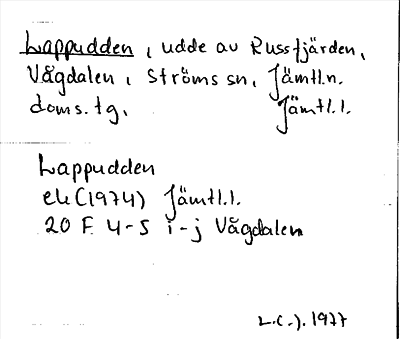 Lappudden, udde av Russfjärden,
Vågdalen, Ströms sn, Jämtl.n.
doms.tg, Jämtl.l.
Lappudden
ek (1974) Jämtl.l.
20 F 4-5 i-j Vågdalen
1977